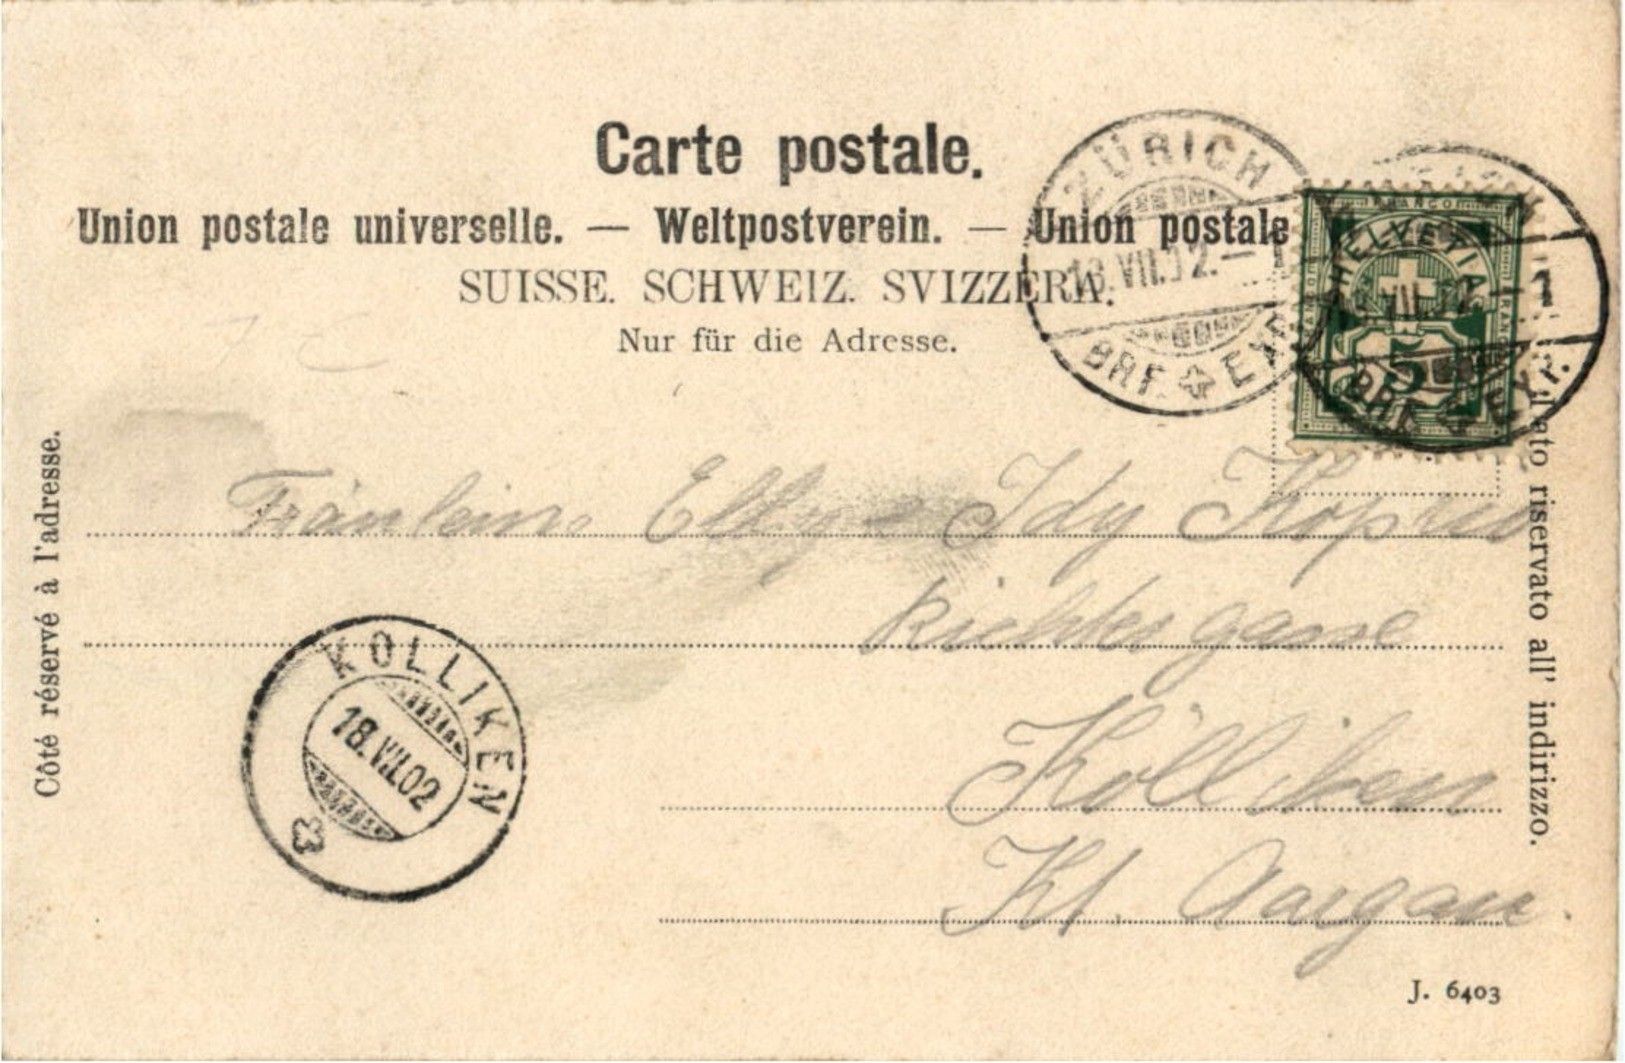 Carte postale.
Union postale universelle. — Weltpostverein. — Union postale
SUISSE. SCHWEIZ. SVIZZERA.
Nur für die Adresse.
ZÜRICH
18.VII.02.–
BRF. EXP.
FRANCO
HELVETIA
5
VII.02.–1
BRF. EXP.
Côté réservé à l'adresse.
lato riservato all' indirizzo.
Fräulein Elly & Idy
Richtergasse
KÖLLIKEN
18.VII.02
Kölliken
Kt. Aargau
J. 6403